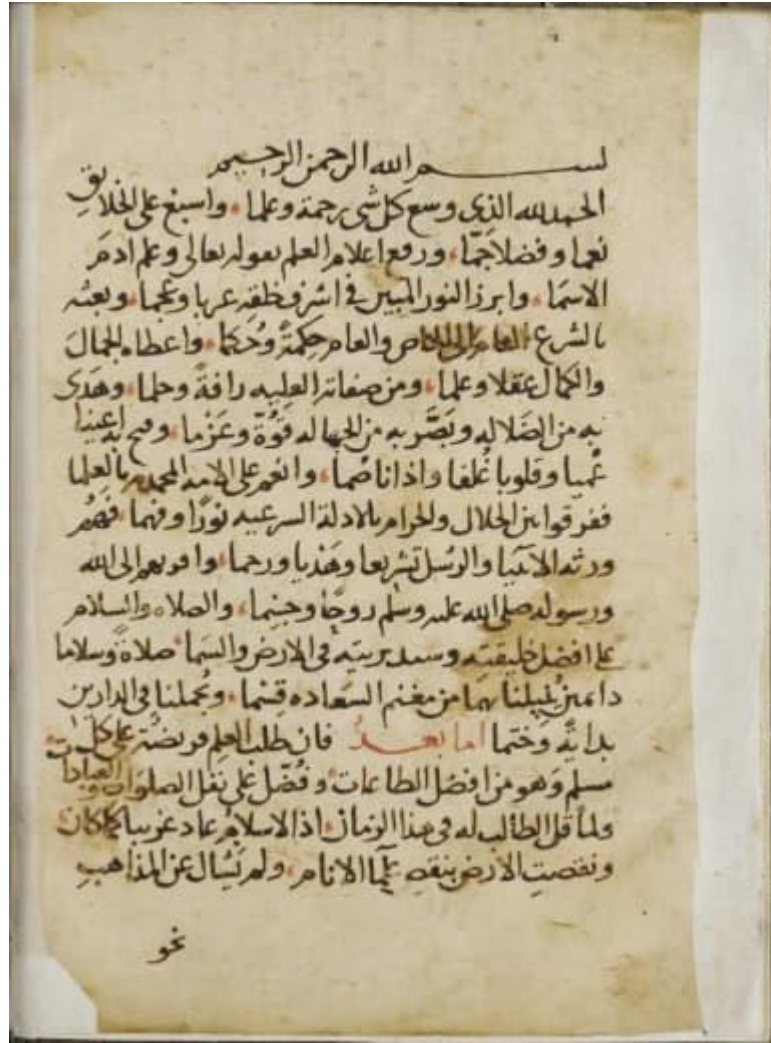 بسم الله الرحمن الرحيم
الحمد لله الذي وسع كل شي رحمة وعلما، واسبغ على الخلايق
نعما وفضلا جمّا، ورفع اعلام العلم بقوله تعالى وعلم ادم
الاسما، وابرز النور المبين في اشرف خلقه عربا وعجما، وبعثه
بالشرع العام الى الخاص والعام حِكمةً وحُكما، واعطاه الجمال
والكمال عقلا وعلما، ومن صفاته العليه رافةً وحلما، وهَدَى
به من الضلاله وبَصَّر به من الجهاله قوّة وعَزْما، وفتح به اعينا
عُميا وقلوبا غُلفا واذانا صُما، وانعم على الامه المحمديه بالعلما
ففرقوا بين الحلال والحرام بالادلة الشرعيه نورًا وفهما، فهُم
ورثه الانبيا والرسل تشريعا وهَدْيا ورحما، واقربهم الى الله
ورسوله صلى الله عليه وسلم روحًا وجسما، والصلاه والسلام
على افضل خليقته وسيد بريته في الارض والسما صلاةً وسلاما
دايمين يُنيلنا بهما من مغنم السعاده قِسما، ويُجملنا في الدارين
بدايةً وختما اما بعدُ فان طلب العلم فريضةٌ على كل
مسلم وَهو من افضل الطاعات، وفُضّل على نفل الصلوات والعبادات
ولما قل الطالب له في هذا الزمان، اذ الاسلام عاد غريبا كما كان،
ونقصتِ الارض بنقص علما الانام، ولم يَسْال عن المذاهب
نحو